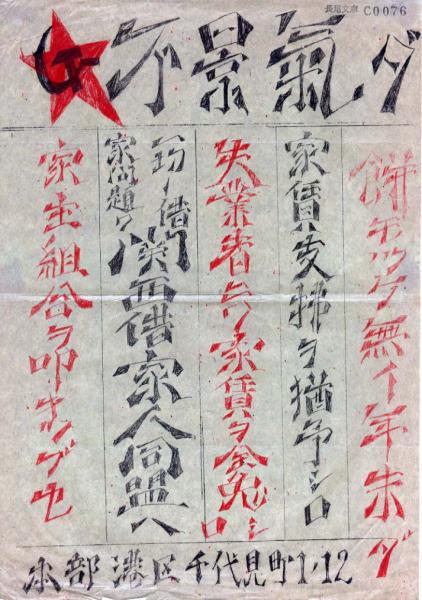 長尾文庫 C0076
不景氣ダ
餅モツケ無イ年末ダ
家賃支拂ヲ猶予シロ
失業者ノ家賃ヲ全免シロ
一切ノ借
家問題ハ
関西借家人同盟ヘ
家主組合ヲ叩キツブセ
本部 港区千代見町1・12